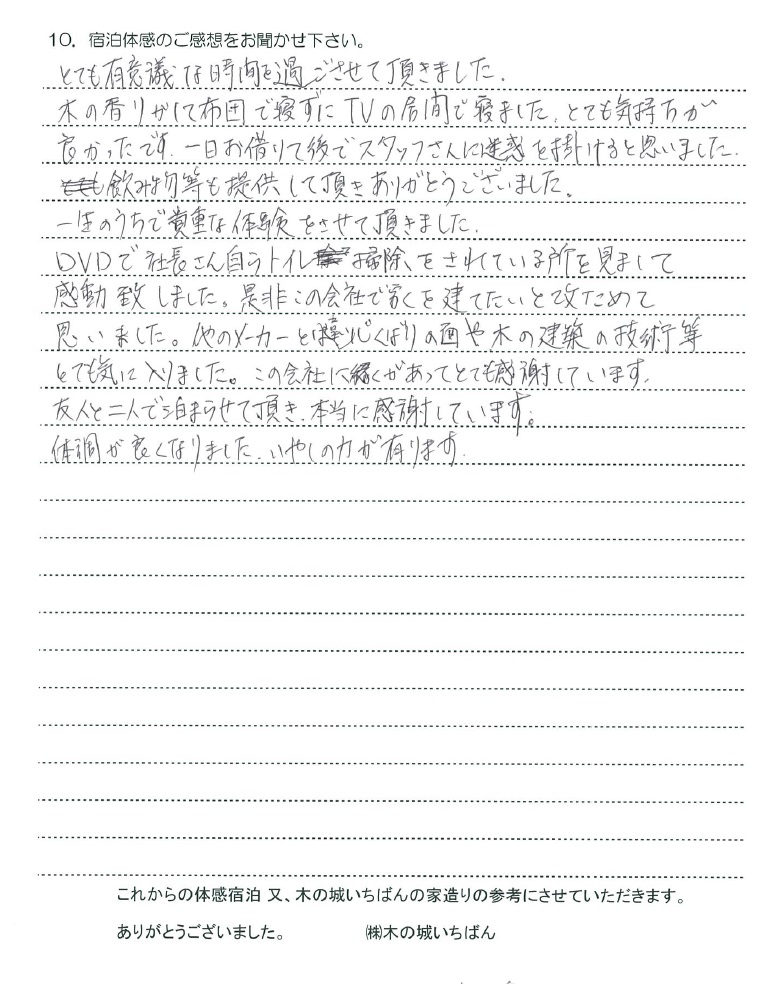 10. 宿泊体感のご感想をお聞かせ下さい。
とても有意議な時間を過ごさせて頂きました.
木の香りがして布団で寝ずにTVの居間で寝ました. とても気持ちが
良かったです. 一日お借りて後でスタッフさんに迷惑を掛けると思いました.
飲み物等も提供して頂きありがとうございました。
一生のうちで貴重な体験をさせて頂きました.
DVDで社長さん自らトイレ掃除をされている所を見まして
感動致しました。是非この会社で家を建てたいと改ためて
思いました。他のメーカーとは違い 面や木の建築の技術等
とても気に入りました。この会社に縁があってとても感謝しています.
友人と二人で泊まらせて頂き. 本当に感謝しています。
体調が良くなりました. いやしの力が有ります.
これからの体感宿泊 又、木の城いちばんの家造りの参考にさせていただきます。
ありがとうございました。 ㈱木の城いちばん